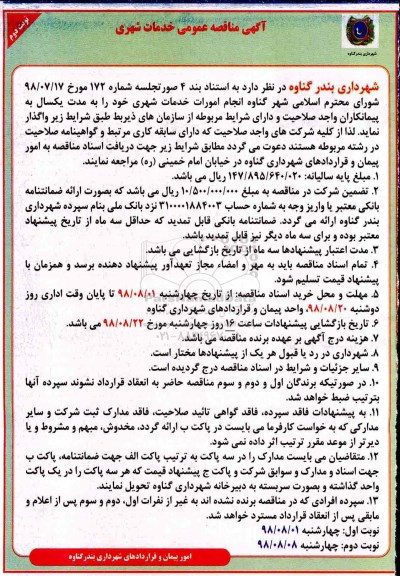 نوبت دوم
آگهی مناقصه عمومی خدمات شهری
شهرداری بندرگناوه
شهرداری بندر گناوه در نظر دارد به استناد بند ۴ صورتجلسه شماره ۱۷۲ مورخ ۹۸/۰۷/۱۷
شورای محترم اسلامی شهر گناوه انجام امورات خدمات شهری خود را به مدت یکسال به
پیمانکاران واجد صلاحیت و دارای شرایط مربوطه از سازمان های ذیربط طبق شرایط زیر واگذار
نماید. لذا از کلیه شرکت های واجد صلاحیت که دارای سابقه کاری مرتبط و گواهینامه صلاحیت
در رشته مربوطه هستند دعوت می گردد مطابق شرایط زیر جهت دریافت اسناد مناقصه به امور
پیمان و قراردادهای شهرداری گناوه در خیابان امام خمینی (ره) مراجعه نمایند.
۱. مبلغ پایه سالیانه: ۱۴۷/۸۹۵/۶۴۰/۰۲۰ ریال می باشد.
۲. تضمین شرکت در مناقصه به مبلغ ۱۰/۵۰۰/۰۰۰/۰۰۰ ریال می باشد که بصورت ارائه ضمانتنامه
بانکی معتبر یا واریز وجه به شماره حساب ۳۱۰۰۰۰۱۸۸۴۰۰۳ نزد بانک ملی بنام سپرده شهرداری
بندر گناوه ارائه می گردد. ضمانتنامه بانکی قابل تمدید که حداقل سه ماه از تاریخ پیشنهاد
معتبر بوده و برای سه ماه دیگر نیز قابل تمدید باشد.
۳. مدت اعتبار پیشنهادها سه ماه از تاریخ بازگشایی می باشد.
۴. تمام اسناد مناقصه باید به مهر و امضاء مجاز تعهدآور پیشنهاد دهنده برسد و همزمان با
پیشنهاد قیمت تسلیم شود.
۵. مهلت و محل خرید اسناد مناقصه: از تاریخ چهارشنبه ۹۸/۰۸/۰۱ تا پایان وقت اداری روز
دوشنبه ۹۸/۰۸/۲۰، واحد پیمان و قراردادهای شهرداری گناوه
۶. تاریخ بازگشایی پیشنهادات ساعت ۱۶ روز چهارشنبه مورخ ۹۸/۰۸/۲۲ می باشد.
۷. هزینه درج آگهی بر عهده برنده مناقصه می باشد.
۸. شهرداری در رد یا قبول هر یک از پیشنهادها مختار است.
۹. سایر جزئیات و شرایط در اسناد مناقصه درج گردیده است.
۱۰. در صورتیکه برندگان اول و دوم و سوم مناقصه حاضر به انعقاد قرارداد نشوند سپرده آنها
بترتیب ضبط خواهد شد.
۱۱. به پیشنهادات فاقد سپرده، فاقد گواهی تائید صلاحیت، فاقد مدارک ثبت شرکت و سایر
مدارکی که به خواست کارفرما می بایست در پاکت ب ارائه گردد، مخدوش، مبهم و مشروط و یا
دیرتر از موعد مقرر ترتیب اثر داده نمی شود.
۱۲. متقاضیان می بایست مدارک را در سه پاکت به ترتیب پاکت الف جهت ضمانتنامه، پاکت ب
جهت اسناد و مدارک و سوابق شرکت و پاکت ج پیشنهاد قیمت که هر سه پاکت را در یک پاکت
واحد گذاشته و بصورت سربسته به دبیرخانه شهرداری گناوه تحویل نمایند.
۱۳. سپرده افرادی که در مناقصه برنده نشده اند به غیر از نفرات اول، دوم و سوم پس از اعلام و
مابقی پس از انعقاد قرارداد مسترد خواهد شد.
نوبت اول: چهارشنبه ۹۸/۰۸/۰۱
نوبت دوم: چهارشنبه ۹۸/۰۸/۰۸
امور پیمان و قراردادهای شهرداری بندرگناوه